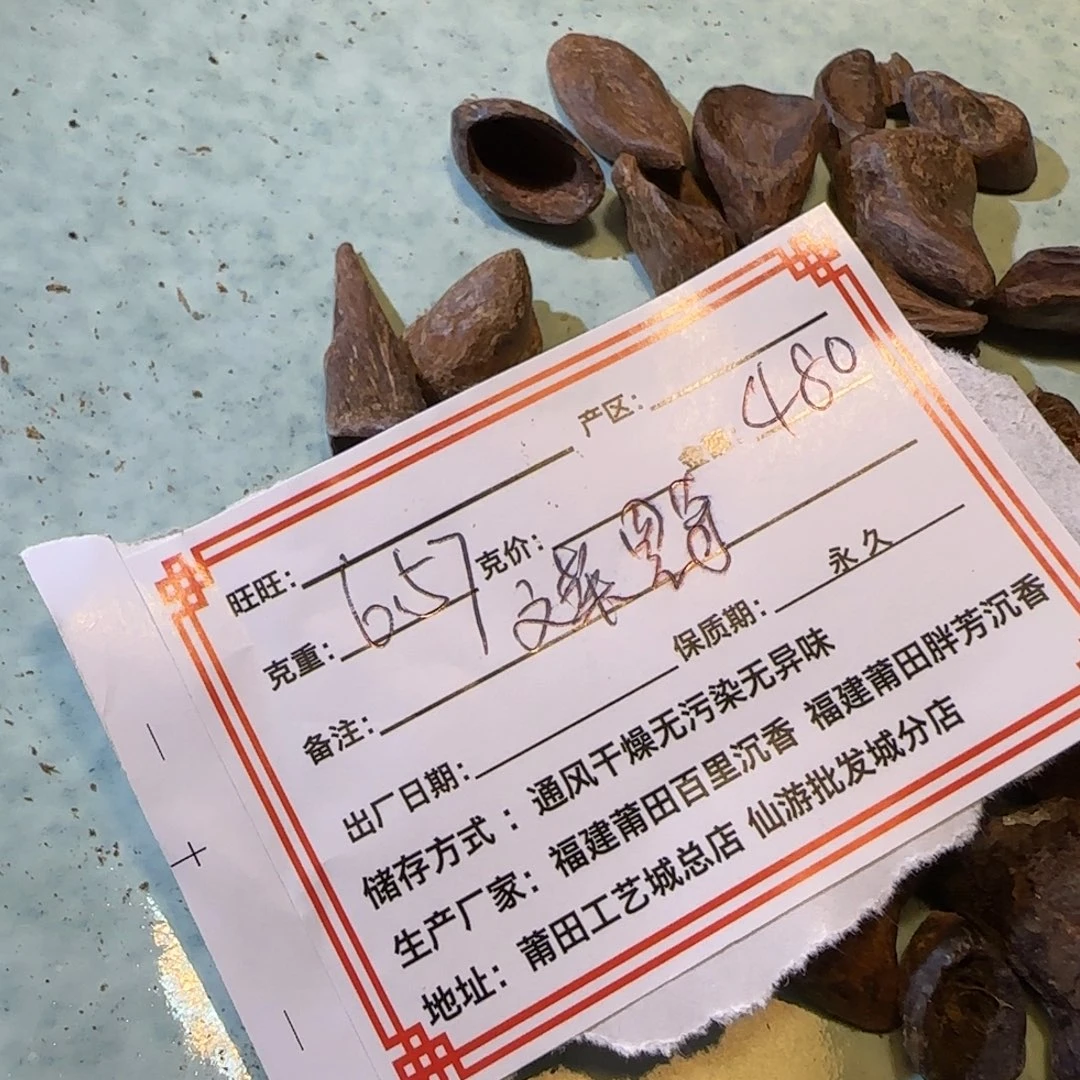 旺旺: 产区:
克重: 6.57 克价: 金额: 480
备注: 文莱
出厂日期: 保质期: 永久
储存方式：通风干燥无污染无异味
生产厂家：福建莆田百里沉香 福建莆田胖芳沉香
地址：莆田工艺城总店 仙游批发城分店